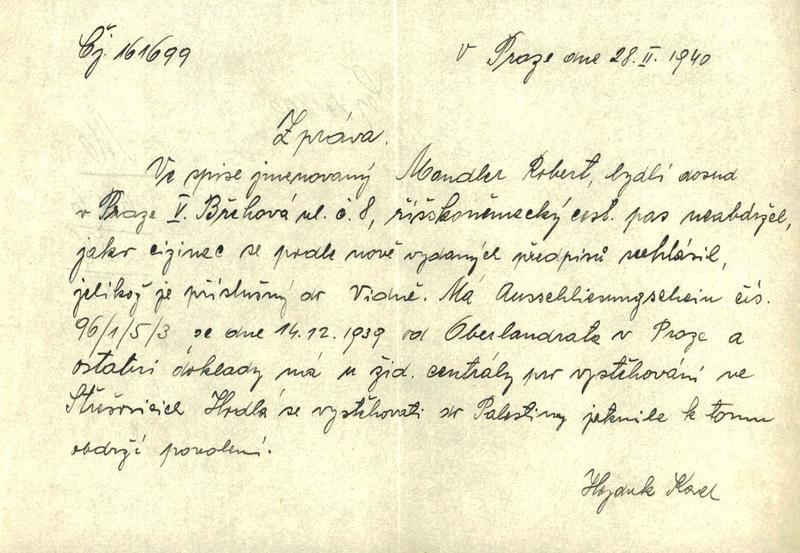 Čj. 161699
V Praze dne 28. II. 1940
Zpráva.
Ve spise jmenovaný Mandler Robert, bydlí dosud
v Praze V. Břehová ul. č. 8, říškoněmecký cest. pas neobdržel,
jako cizinec se podle nově vydaných předpisů nehlásil,
jelikož je příslušný do Vídně. Má Ausschliesungschein čís.
96/1/5/3 ze dne 14.12.1939 od Oberlandrata v Praze a
ostatní doklady má u žid. centrály pro vystěhování ve
Střešovicích Hodlá se vystěhovati do Palestiny jakmile k tomu
obdrží povolení.
Hajduk Karel